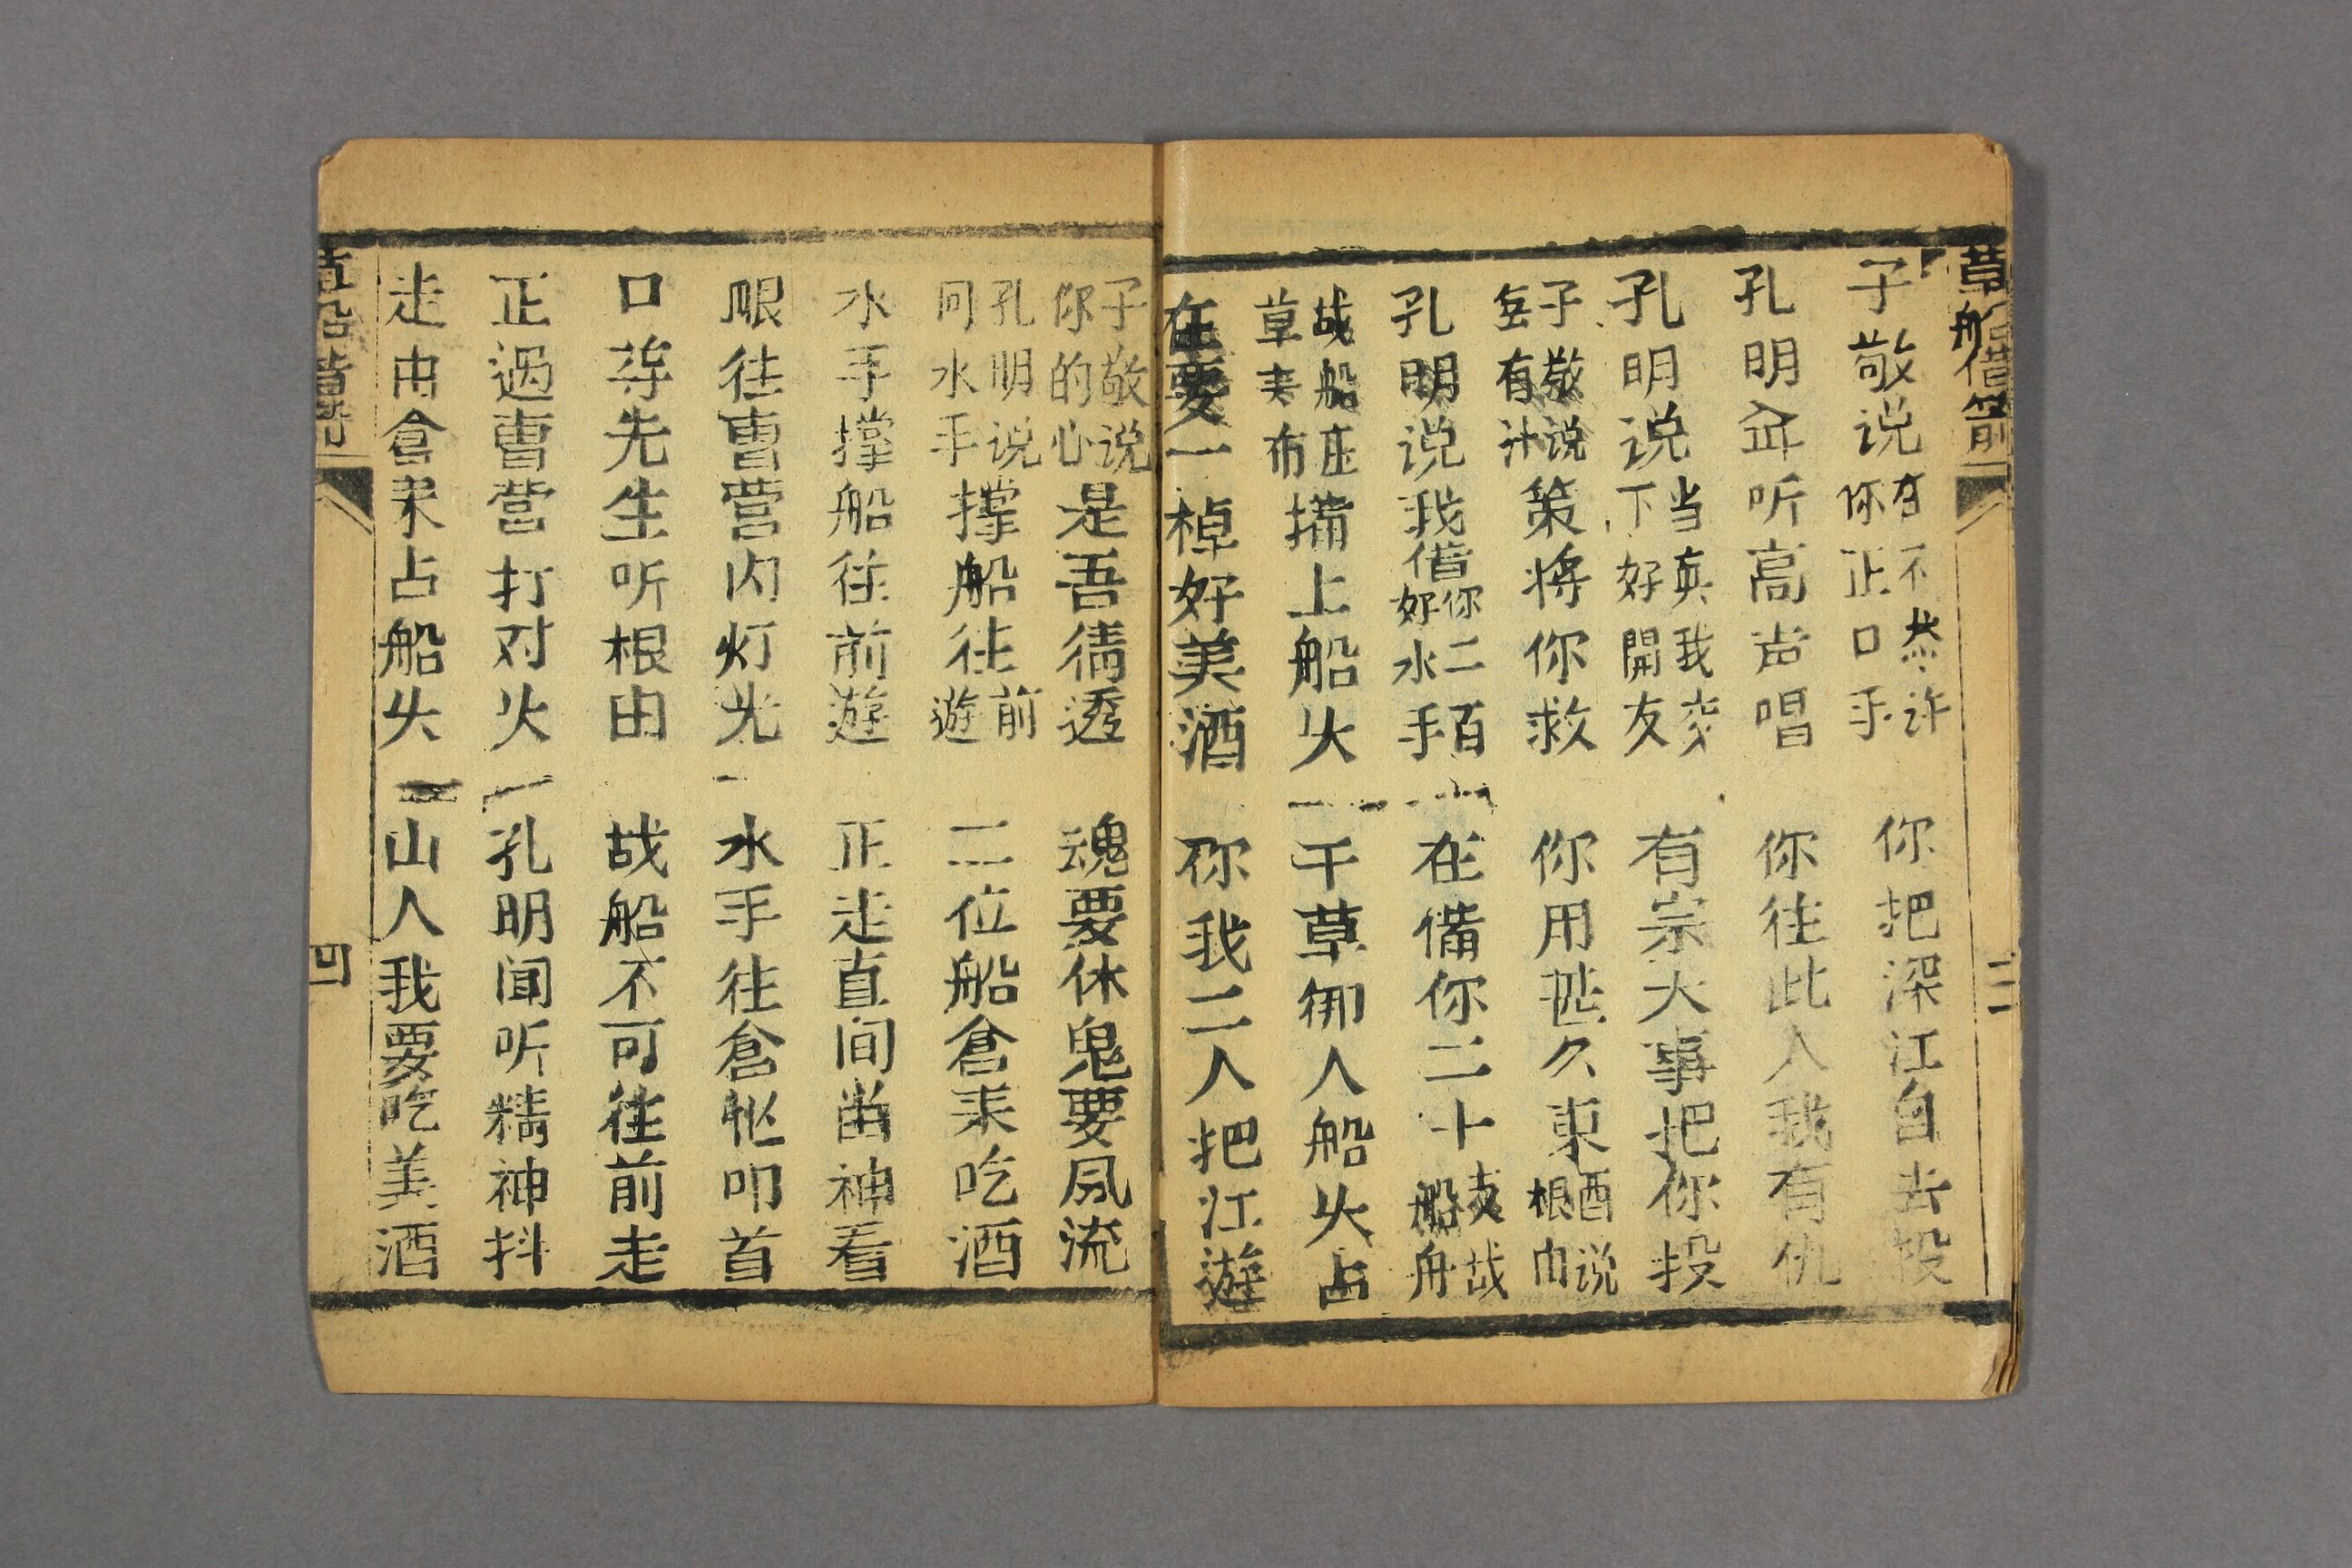 草船借箭
三
子敬说有不恭许你正口乎 你把深江自去投
孔明听高声唱 你往此人我有仇
孔明说当真我交下好開友 有宗大事把你投
子敬说岳有计策将你救 你用甚久東西说根由
孔明说我借你二百好水手 在備你二十支战船舟
战船庄草夫布摆上船头 干草御人船头占
在要一桌好美酒 你我二人把江遊
子敬说你的心是吾猜透 魂要休鬼要风流
孔明说同水手撑船往前遊 二位船倉来吃酒
水手撑船往前遊 正走直间留神看
眼往曹营内灯光 水手往倉忙叩首
口尊先生听根由 战船不可往前走
正遇曹营打对火 孔明闻听精神抖
走出倉来占船头 山人我要吃美酒
草船借箭
四